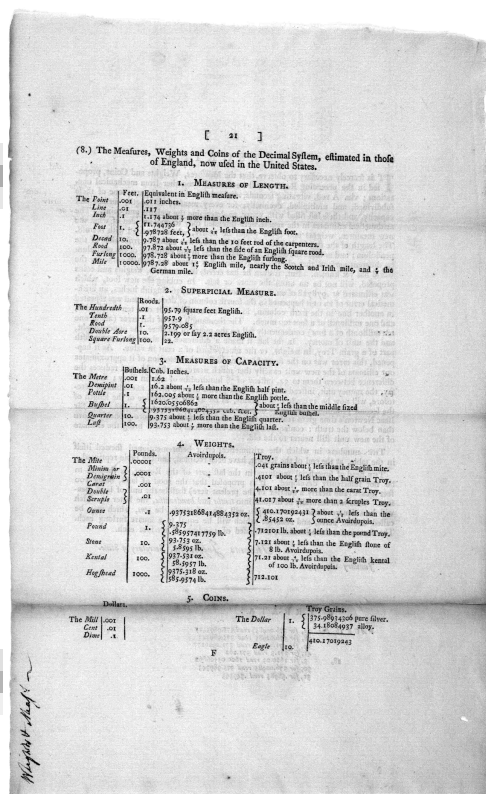 [ 21 ]
(8.) The Meaſures, Weights and Coins of the Decimal Syſtem, eſtimated in thoſe
of England, now uſed in the United States.
1. MEASURES OF LENGTH.
Feet. Equivalent in Engliſh meaſure.
The Point .001 .011 inches.
Line .01 .117
Inch .1 1.174 about more than the Engliſh inch.
Foot 1. { 11.744736 .978728 feet, } about leſs than the Engliſh foot.
Decad 10. 9.787 about leſs than the 10 feet rod of the carpenters.
Rood 100. 97.872 about leſs than the ſide of an Engliſh ſquare rood.
Furlong 1000. 978.728 about more than the Engliſh furlong.
Mile 10000. 9787.28 about Engliſh mile, nearly the Scotch and Iriſh mile, and the
German mile.
2. SUPERFICIAL MEASURE.
Roods.
The Hundredth .01 95.79 ſquare feet Engliſh.
Tenth .1 957.9
Rood 1. 9579.085
Double Acre 10. 2.199 or ſay 2.2 acres Engliſh.
Square Furlong 100. 22.
3. MEASURES OF CAPACITY.
Buſhels. Cub. Inches.
The Metre .001 1.62
Demipint .01 16.2 about leſs than the Engliſh half pint.
Pottle .1 162.005 about more than the Engliſh pottle.
Buſhel 1. { 1620.05506862 cub. feet. } about leſs than the middle ſized
Engliſh buſhel.
Quarter 10. 9.375 about leſs than the Engliſh quarter.
Laſt 100. 93.753 about more than the Engliſh laſt.
4. WEIGHTS.
Pounds. Avoirdupois. Troy.
The Mite .00001 .041 grains about leſs than the Engliſh mite.
Minim or Demigrain } .0001 .4101 about leſs than the half grain Troy.
Carat .001 4.101 about more than the carat Troy.
Double Scruple } .01 41.017 about more than 2 ſcruples Troy.
Ounce .1 .937531868414884352 oz. { 410.170192431 .85452 oz. } about leſs than the
ounce Avoirdupois.
Pound 1. { 9.375 .585957417759 lb. .712101 lb. about leſs than the pound Troy.
Stone 10. { 93.753 oz. 5.8595 lb. 7.121 about leſs than the Engliſh ſtone of
8 lb. Avoirdupois.
Kental 100. { 937.531 oz. 58.5957 lb. 71.21 about leſs than the Engliſh kental
of 100 lb. Avoirdupois.
Hogſhead 1000. { 9375.318 oz. 585.9574 lb. 712.101
5. COINS.
Dollars. Troy Grains.
The Mill .001 The Dollar 1. { 375.98934306 pure ſilver.
Cent .01 34.18084937 alloy.
Dime .1 410.17019243
Eagle 10.
F